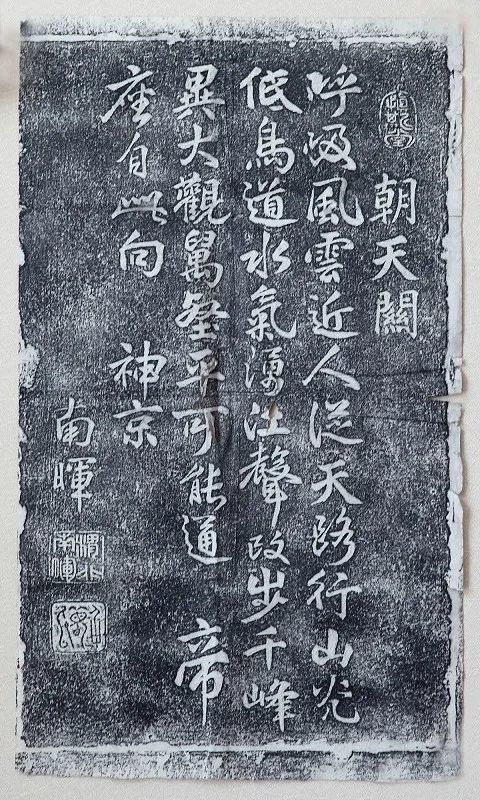 朝天關
呼吸風雲近人從天路行山光
低鳥道水氣湧江聲改步千峰
異大觀萬壑平可能通 帝
座自此向 神京
南暉
渭北南暉